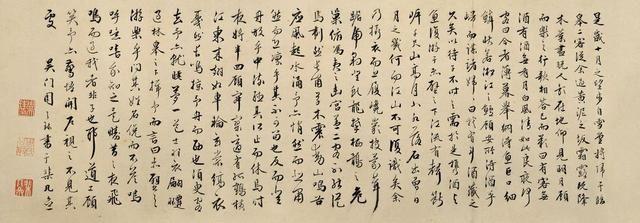 是歲十月之望步自雪堂將歸于臨
皋二客從余過黃泥之坂霜露既降
木葉盡脫人影在地仰見明月顧
而樂之行歌相答已而歎曰有客無
酒有酒無肴月白風清如此良夜何
客曰今者薄暮舉網得魚巨口細
鱗狀若松江之鱸顧安所得酒乎
歸而謀諸婦婦曰我有斗酒藏之
久矣以待子不時之需於是攜酒與
魚復游于赤壁之下江流有聲斷
岸千尺山高月小水落石出曾日
月之幾何而江山不可復識矣余
乃攝衣而上履巉巖披蒙茸
踞虎豹登虯龍攀栖鶻之危
巢俯馮夷之幽宮蓋二客不能從
焉劃然長嘯草木震動山鳴谷
應風起水涌予亦悄然而悲肅
然而恐凜乎其不可留也反而登
舟放乎中流聽其所止而休焉時
夜將半四顧寂寥適有孤鶴橫
江東來翅如車輪玄裳縞衣
戛然長鳴掠予舟而西也須臾客
去予亦就睡夢一道士羽衣翩躚
過臨皋之下揖予而言曰赤壁之
游樂乎問其姓名俛而不答嗚
呼噫嘻我知之矣疇昔之夜飛
鳴而過我者非子也耶道士顧
笑予亦驚悟開戶視之不見其
處 吳門周天球書于